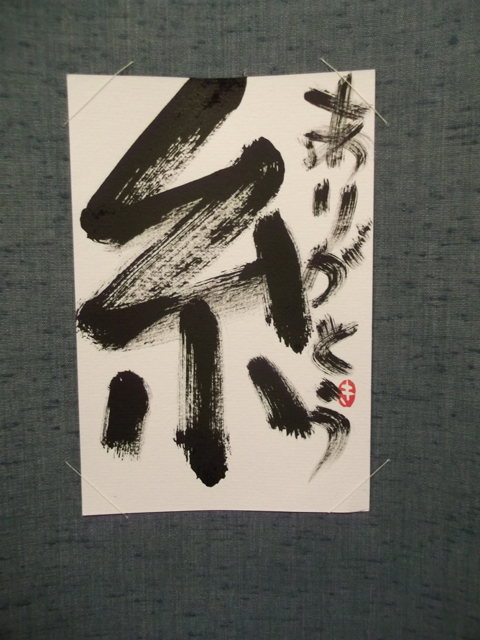 ありがとう
糸